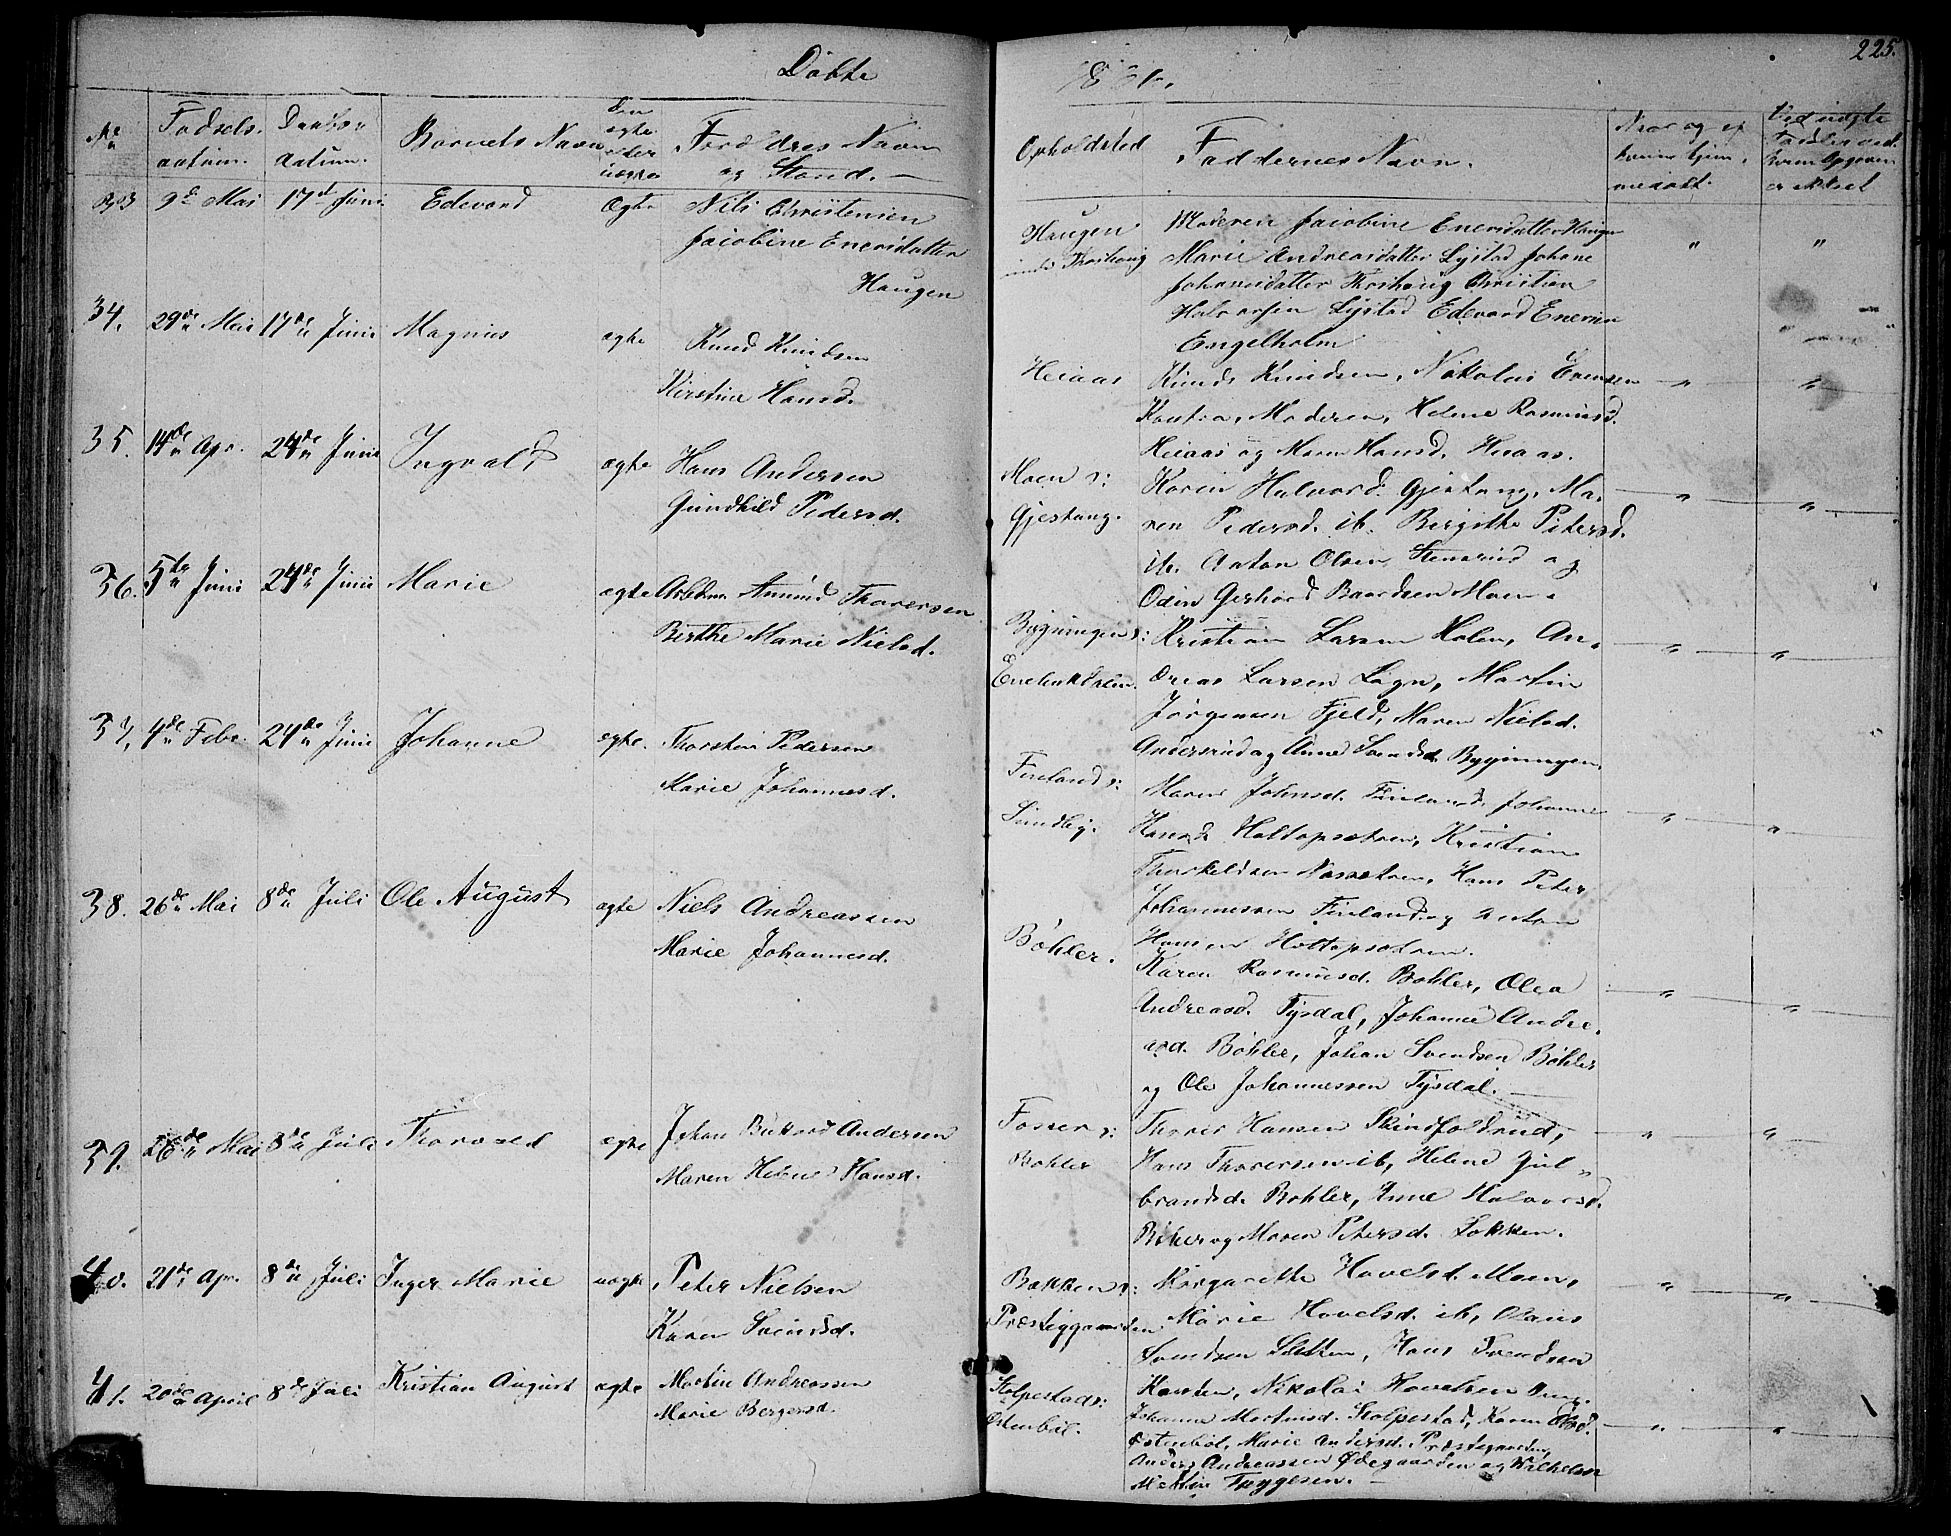 Døbte
225.
No
Fødsels-
datum.
Daabs-
datum.
Barnets Navn
Om
ægte
eller
uægte
Forældres Navn
og Stand.
Opholdsted
Faddernes Navn.
33 9de Mai 17de Juni Edevard Ægte Nils Christensen
Jacobine Enersdatter
Haugen
Haugen
Moderen Jacobine Enersdatter Haugen
Marie Andreasdatter Lystad Johane
Johannsdatter Christian
Halvorsen Lystad Edevard Enersen
Engelholm
34. 29de Mai 17de Juni Magnus ægte Knud Knudsen
Kirstine Hansd.
Heiaas
Knud Knudsen, Nikolai Evensen
Moderen, Helene Rasmusd.
Heiaas og Maren Hansd. Heiaas.
35. 14de Apr. 24de Juni Ingvald ægte Hans Andersen
Gundhild Pedersd.
Moen v:
Gjestang.
Karen Halvord. Gjestang, Ma-
ren Pedersd. ib. Birgitte Petersd.
ib. Anton Olsen Stensrud og
Odin Gerhard Baardsen Moen.
36. 5te Juni 24de Juni Marie ægte Amund Thoresen
Berthe Marie Nielsd.
Bygningen v:
Kristian Larsen Holen, An-
dreas Larsen Løgn, Martin
Jørgensen Fjeld, Maren Nielsd.
Andersrud og Anne Svendsd. Bygningen.
37. 4de Febr. 24de Juni Johanne ægte. Thorstin Pedersen
Marie Johannesd.
Finland v:
Sundby.
Maren Johnsd. Finland, Johanne
Hansd. Holtopsætren, Kristian
Thorkeldsen Nassætren, Hans Peter
Johannessen Finland og Anton
Hansen Holtopsætren.
38. 26de Mai 8de Juli Ole August ægte Niels Andreassen
Marie Johannesd.
Bøhler.
Karen Rasmusd. Bøhler, Olea
Andreasd. Tysdal, Johanne Andre-
asd. Bøhler, Johan Svendsen Bøhler
og Ole Johannessen Tysdal.
39. 26de Mai 8de Juli Thorvald ægte Johan Andersen
Maren Helene Hansd.
Fosser v:
Bøhler
Thorer Hansen Skindfoldrud,
Hans Thorersen ib, Helene Gul-
brandsd. Bøhler, Anne Halvorsd.
Bøhler og Maren Petersd. Løkken.
40. 21de Apr. 8de Juli Inger Marie uægte Peter Nielsen
Karen Svendsd.
Bakken v:
Præsteggaarden
Margarethe Hovelsd. Moen,
Marie Hovelsd. ib, Olaus
Svendsen Hans Svendsen
41. 20de April 8de Juli Kristian August ægte Martin Andreassen
Marie Bergersd.
Stolpestad v:
Østenbøl.
Karsten, Nikolai Hovelsen
Johanne Martinsd. Stolpestad, Karen Olsd.
Østenbøl, Marie Andersd. Præstegaarden,
Anders Andreassen Ødegaarden og Wilhelm
Martin Tryggesen.